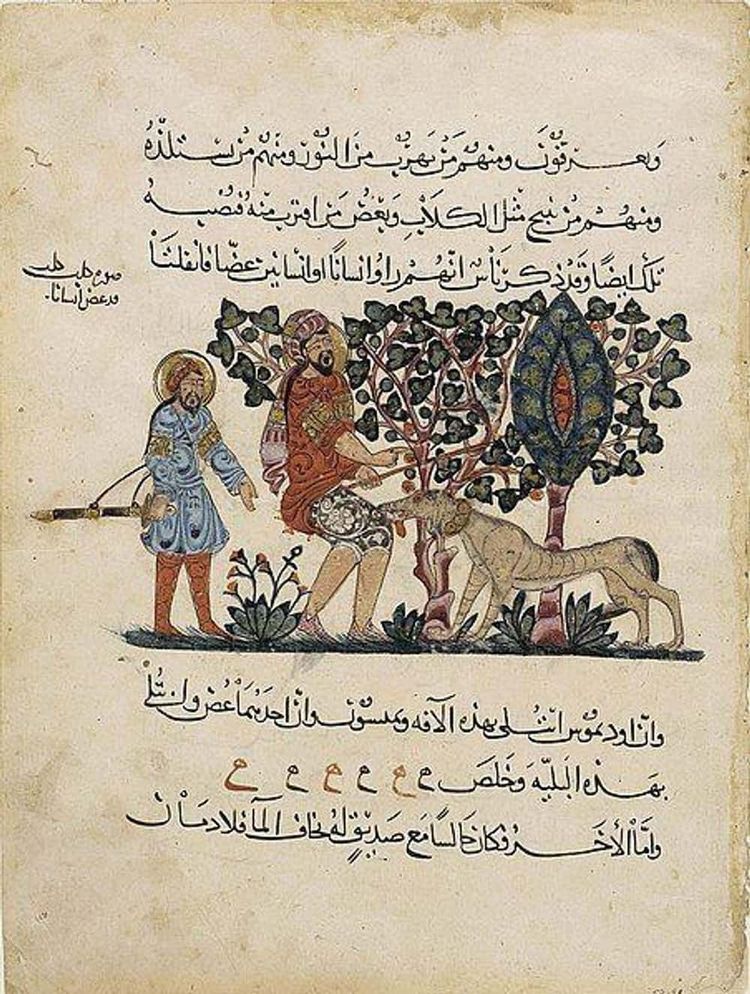 ويعرقون ومنهم من يهرب من النور ومنهم من يستلذه
ومنهم من نبح مثل الكلاب وبعض من اقترب منه
تلك ايضا وقد ذكر ناس انهم راوا انسانا او انسانين عضا فانفلتا
صورة كلب كلب
قد عض انسانا
وان اوديموس ابتلى بهذه الآفه وان احدهما عض وابتلي
بهذه البلية وخلص
واما الآخر فكان جالسا مع صديق له يخاف الما